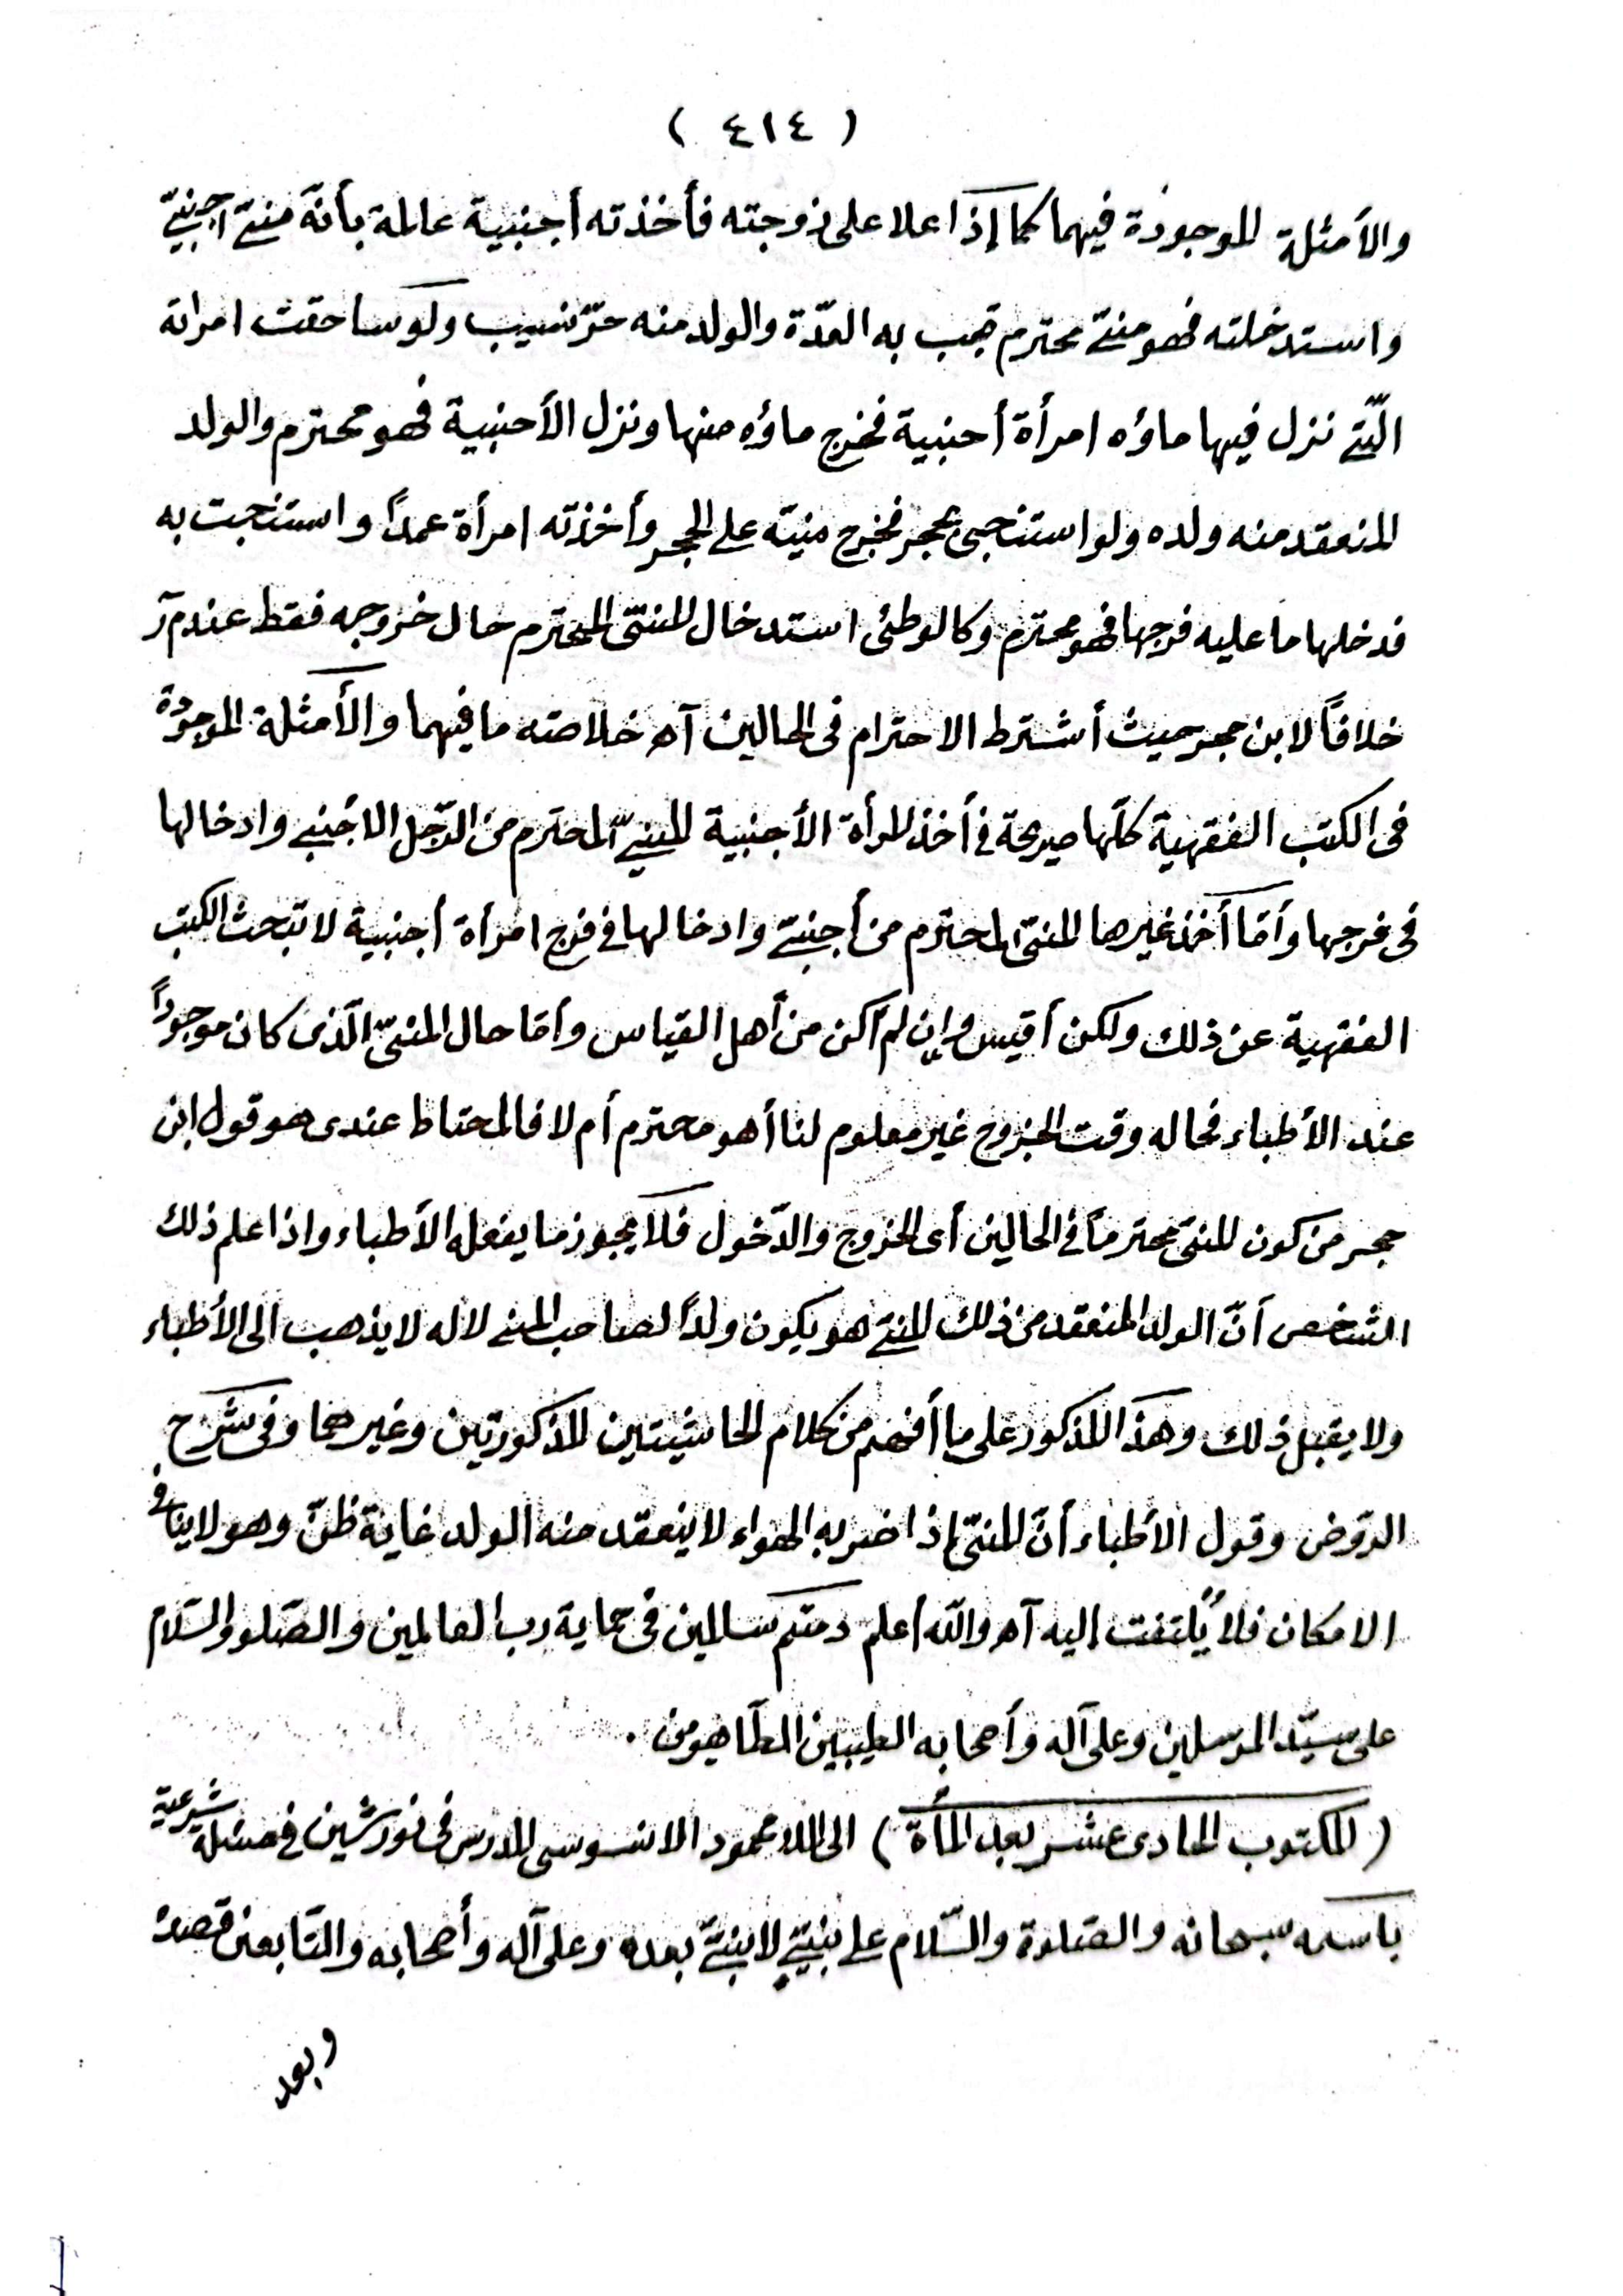 ( ٤١٤ )
والأمثلة الموجودة فيهما كما إذا علا على زوجته فأخذته أجنبية عالمة بأنّه منيّ اجنبيّ
واستدخلته فهو منيّ محترم تجب به العدّة والولد منه حرّ نسيب ولو ساحقت امراته
الّتى نزل فيها ماؤه امرأة أجنبية فخرج ماؤه منها ونزل الأجنبية فهو محترم والولد
المنعقد منه ولده ولو استنجى بحجر فخرج منيّه على الحجر وأخذته امرأة عمداً واستنجت به
فدخلها ما عليه فرجها فهو محترم وكالوطئى استدخال المنىّ المحترم حال خروجه فقط عند م ر
خلافاً لابن حجر حيث أشترط الاحترام فى الحالين آه خلاصته ما فيهما والأمثلة الموجودة
فى الكتب الفقهية كلّها صريحة فى أخذ المرأة الأجنبية المنيّ المحترم من الرّجل الاجنبى وادخالها
فى فرجها وأمّا أخذ غيرها المنىّ المحترم من أجنبىّ وادخالها فى فرج امرأة أجنبية لا تبحث الكتب
الفقهية عن ذلك ولكن أقيس وإن لم أكن من أهل القياس وأمّا حال المنىّ الّذى كان موجوداً
عند الأطباء فحاله وقت الخروج غير معلوم لنا أهو محترم أم لا فالمحتاط عندى هو قول ابن
حجر من كون المنىّ محترماً فى الحالين أى الخروج والدّخول فلا يجوز ما يفعله الأطباء واذا علم ذلك
الشخص أنّ الولد المنعقد من ذلك المنىّ هو يكون ولداً لصاحب المنى لا له لا يذهب الى الأطباء
ولا يقبل ذلك وهذا المذكور على ما أفهم من كلام الحاشيتين المذكورتين وغيرهما وفى شرح
الرّوض وقول الأطباء أنّ المنىّ إذا ضربه الهواء لا ينعقد منه الولد غاية ظنّ وهو لا ينافى
الامكان فلا يُلتفت إليه آه والله أعلم دمتم سالمين فى حماية رب العالمين والصّلو والسّلام
على سيّد المرسلين وعلى آله وأصحابه الطيبين الطّاهرين .
( المكتوب الحادى عشر بعد المأة ) الى الملا محمود الاسوسى المدرس فى نورشين فى مسئلة شرعية
باسمه سبحانه والصّلوة والسّلام على نبيّ لا نبيّ بعده وعلى آله وأصحابه والتّابعين قصده
وبعد